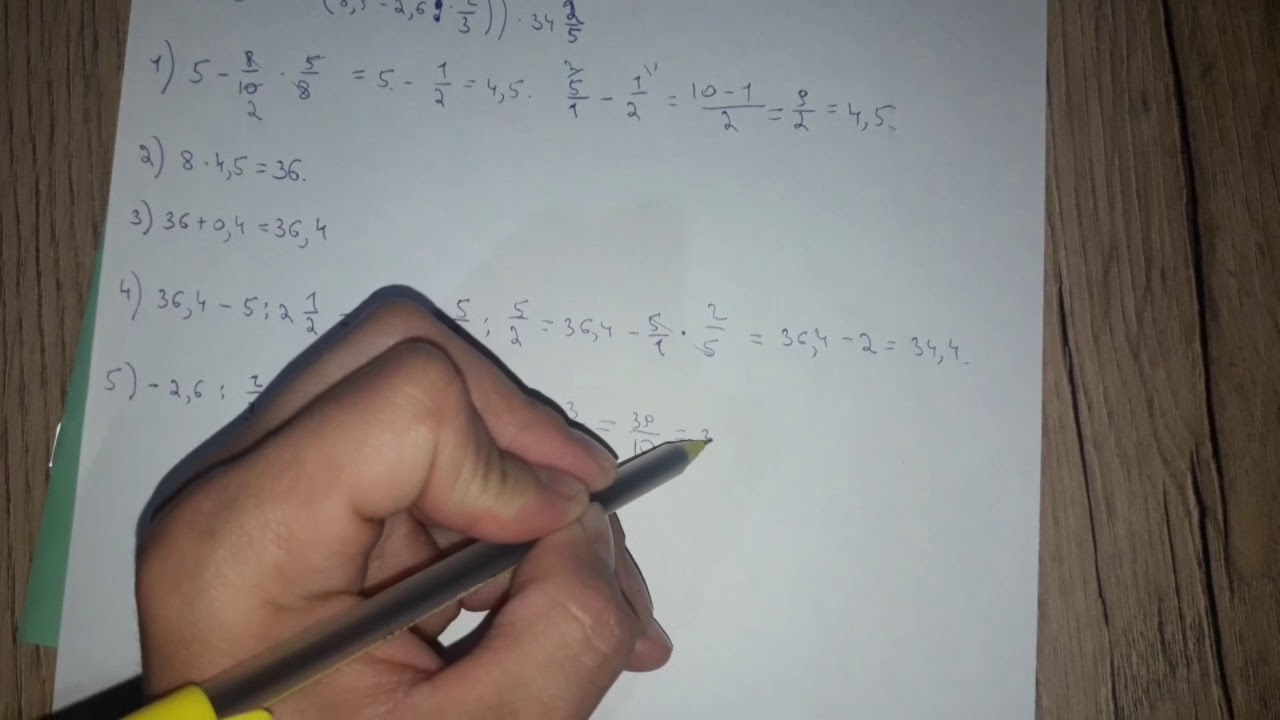 (0,5 - 2,6 : 2/3)) · 34 2/5
1) 5 - 8/10 · 5/8 = 5 - 1/2 = 4,5. 5/1 - 1/2 = 10-1/2 = 9/2 = 4,5.
2) 8 · 4,5 = 36.
3) 36 + 0,4 = 36,4
4) 36,4 - 5 : 2 1/2 = 5 : 5/2 = 36,4 - 5/1 · 2/5 = 36,4 - 2 = 34,4.
5) - 2,6 : 2/3 3 = 39/10 = 3